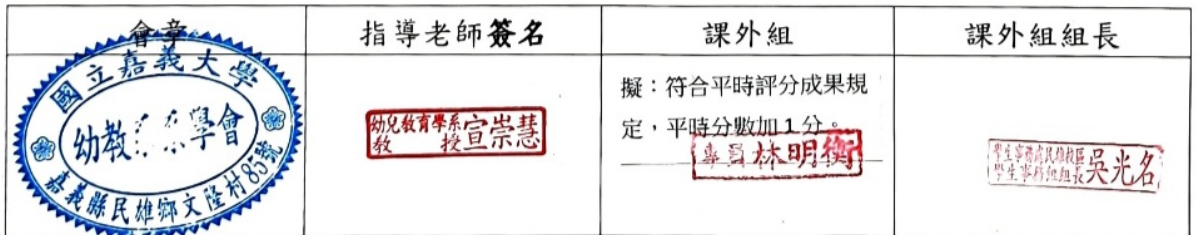 會章
指導老師簽名
課外組
課外組組長
國立嘉義大學
幼教系學會
嘉義縣民雄鄉文隆村85號
幼兒教育學系
教授
宣崇慧
擬：符合平時評分成果規
定，平時分數加1分。
專員林明衡
學生事務處民雄校區
學生事務組組長
吳光名